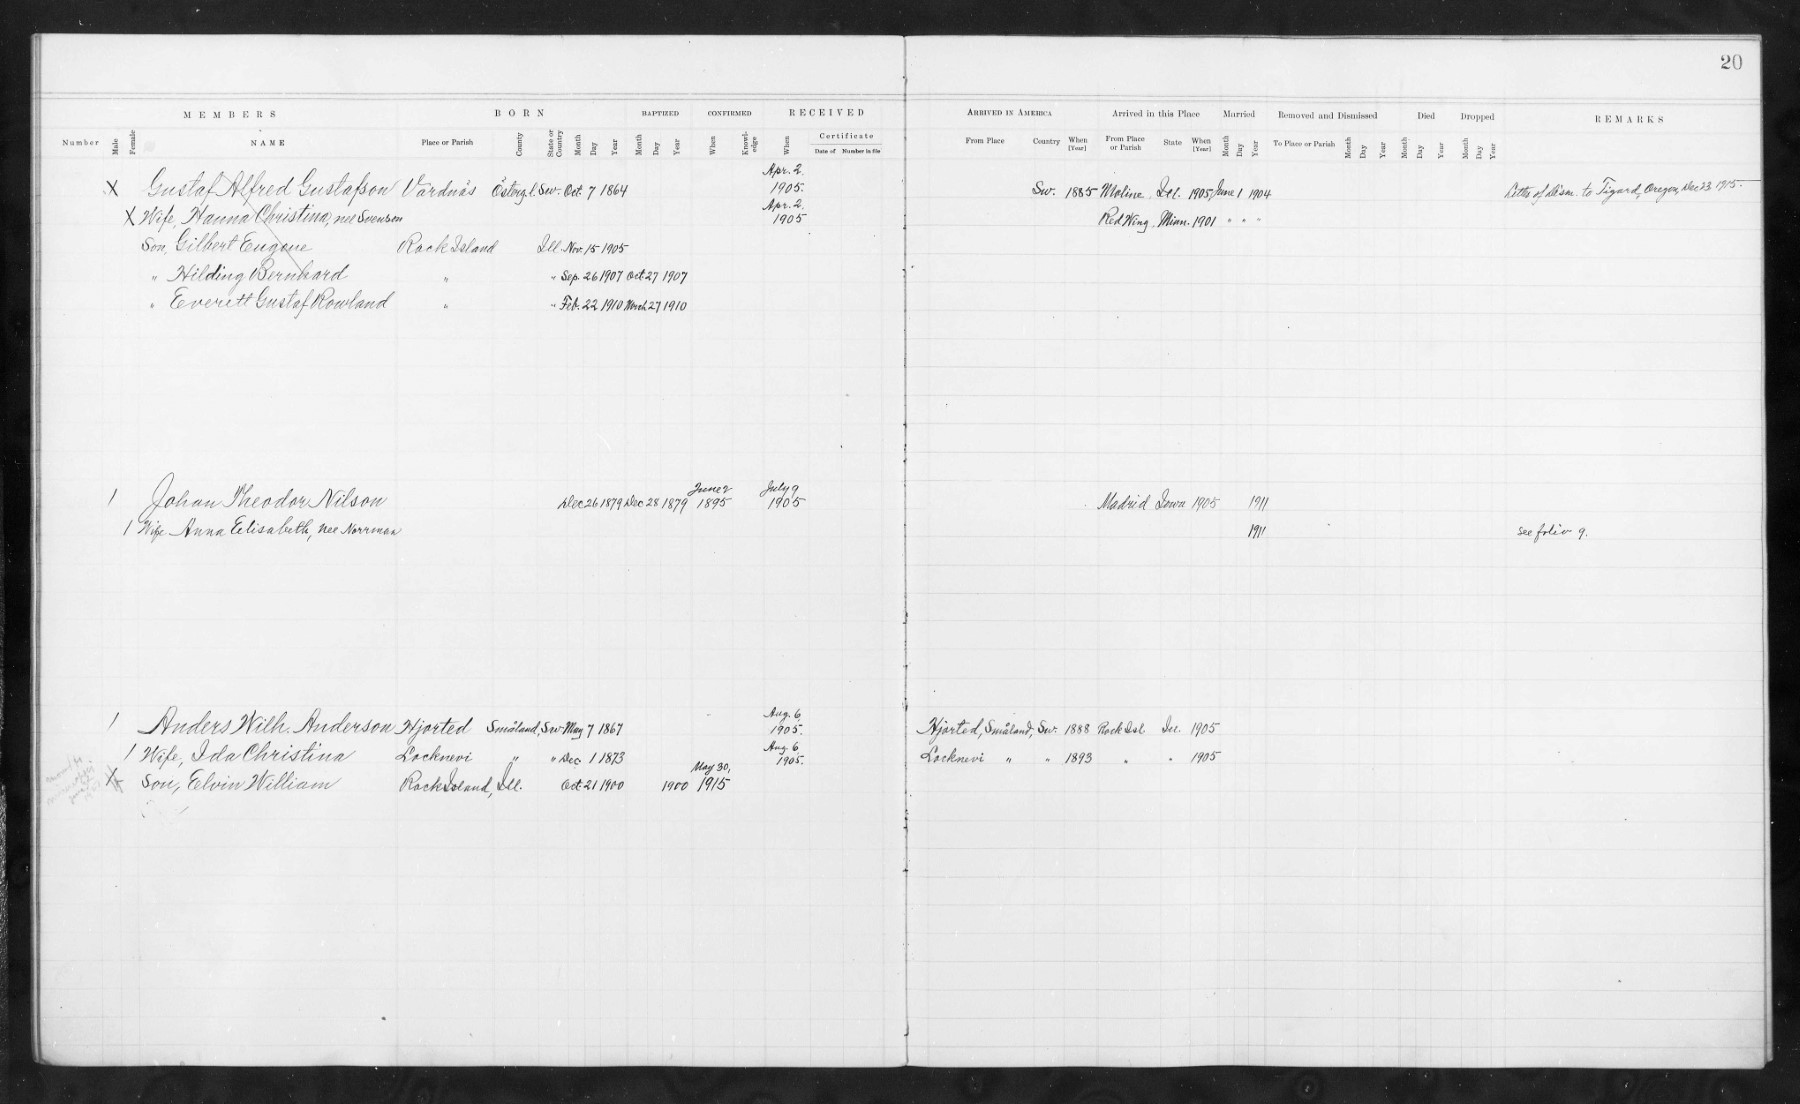 20
MEMBERS BORN BAPTIZED CONFIRMED RECEIVED ARRIVED IN AMERICA Arrived in this Place Married Removed and Dismissed Died Dropped REMARKS
Number Male Female NAME Place or Parish County State or Country Month Day Year Month Day Year When Knowledge When Certificate Date of Number in file From Place Country When [Year] From Place or Parish State When [Year] Month Day Year To Place or Parish Month Day Year Month Day Year Month Day Year
X Gustaf Alfred Gustafson Värdnäs Östergl. Sw. Oct. 7 1864 Apr. 2. 1905. Sw. 1885 Moline, Ill. 1905 June 1 1904 Letter of Dism. to Tigard, Oregon, Dec 23 1915.
X Wife, Hanna Christina, nee Svenson Apr. 2. 1905 Red Wing, Minn. 1901 " " "
Son, Gilbert Eugene Rock Island Ill. Nov. 15 1905
" Hilding Bernhard " " Sep. 26 1907 Oct. 27 1907
" Everett Gustaf Rowland " " Feb. 22 1910 March 27 1910
1 Johan Theodor Nilson Dec 26 1879 Dec 28 1879 June 2 1895 July 9 1905 Madrid Iowa 1905 1911
1 Wife Anna Elisabeth, nee Norrman 1911 see folio 9.
1 Anders Wilh. Anderson Hjorted Småland, Sw. May 7 1867 Aug. 6 1905. Hjorted, Småland, Sw. 1888 Rock Isl Ill. 1905
1 Wife, Ida Christina Locknevi " " Dec. 1 1873 Aug. 6 1905. Locknevi " " 1893 " " 1905
X Son, Elvin William Rock Island, Ill. Oct. 21 1900 1900 May 30, 1915